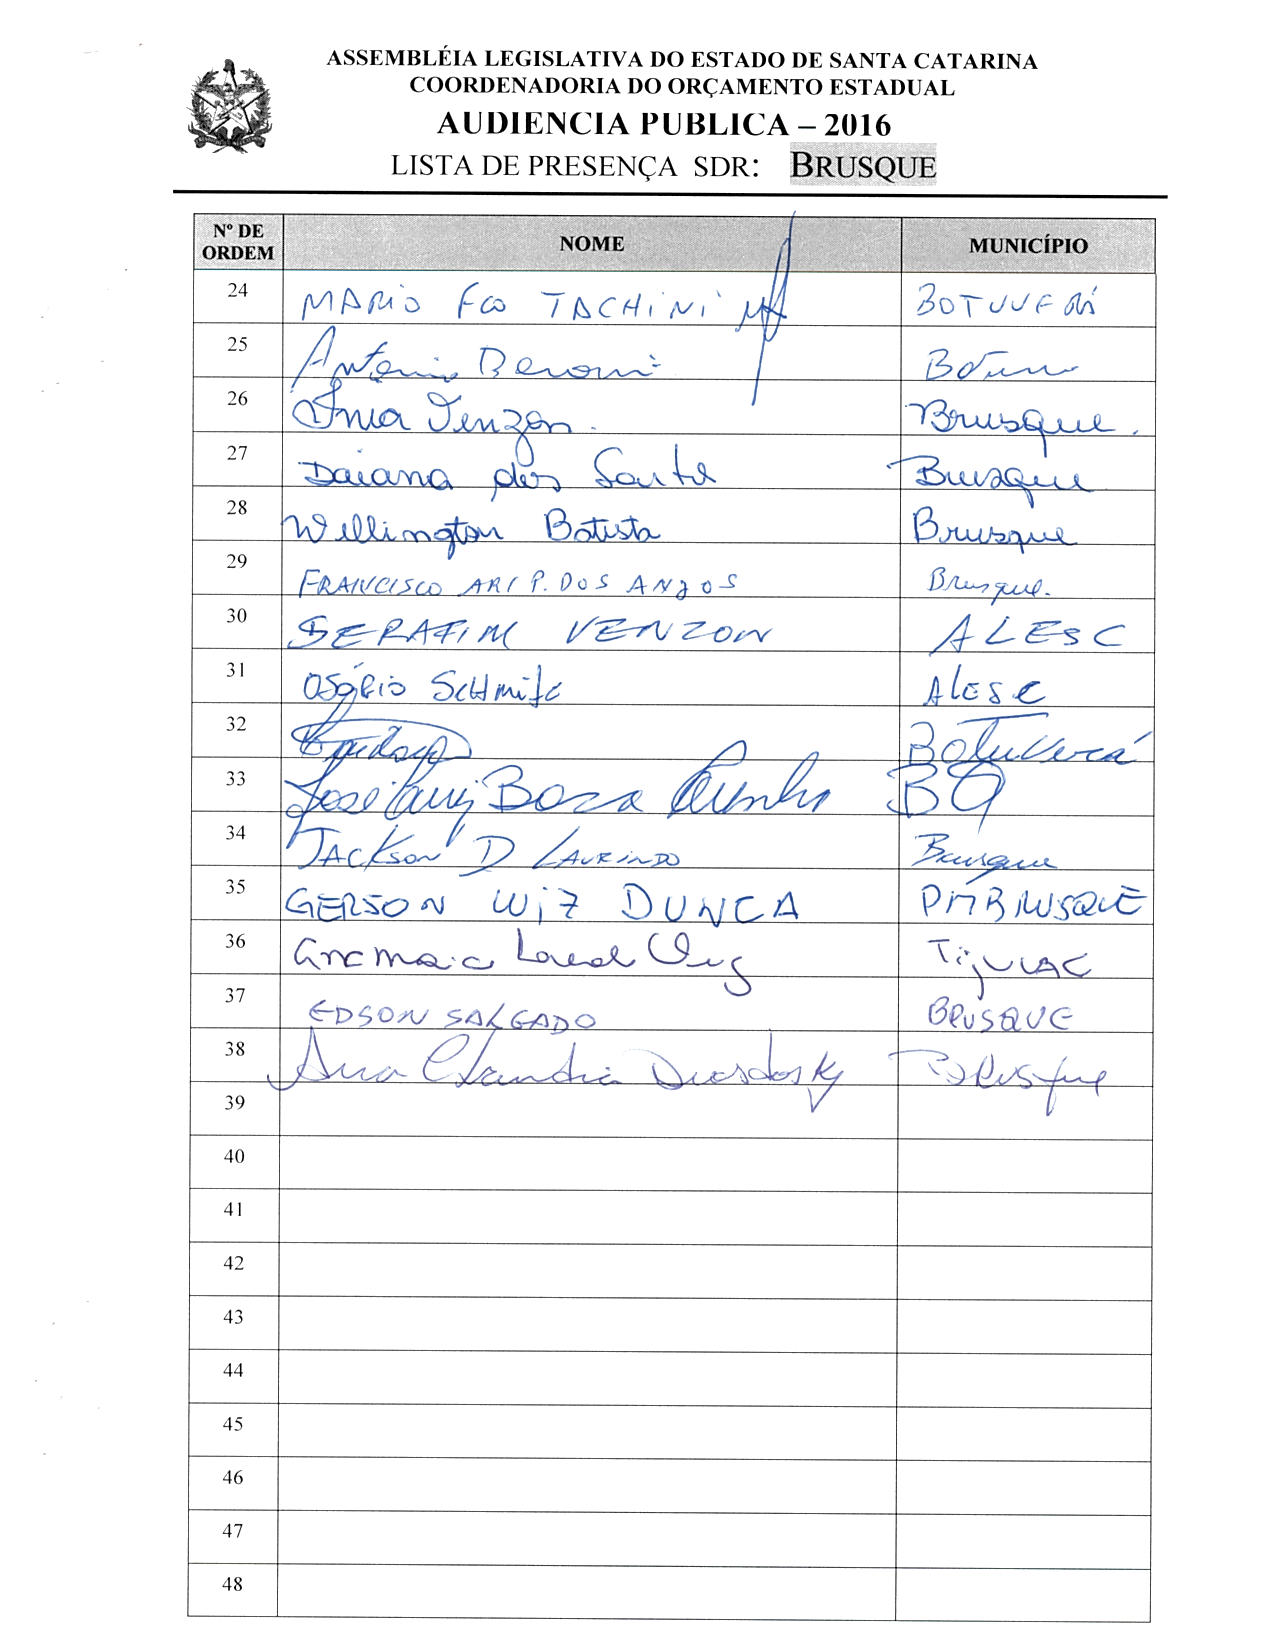 ASSEMBLÉIA LEGISLATIVA DO ESTADO DE SANTA CATARINA
COORDENADORIA DO ORÇAMENTO ESTADUAL
AUDIENCIA PUBLICA – 2016
LISTA DE PRESENÇA SDR: BRUSQUE
Nº DE ORDEM NOME MUNICÍPIO
24 MARIO Fco TACHINI BOTUVERÁ
25 Antonio
26 Venzon. Brusque.
27 Daiana dos Brusque
28 Wellington Batista Brusque
29 FRANCISCO ARI P. DOS ANJOS Brusque.
30 SERAFIM VENZON ALESC
31 OSÓRIO SCHMITZ ALESC
32 Botuverá
33 José Luiz Cunha BQ
34 JACKSON D LAURINDO Brusque
35 GERSON DUNCA PMBRUSQUE
36 TIJUCAS
37 EDSON SALGADO BRUSQUE
38 Ana Claudia Brusque
39
40
41
42
43
44
45
46
47
48